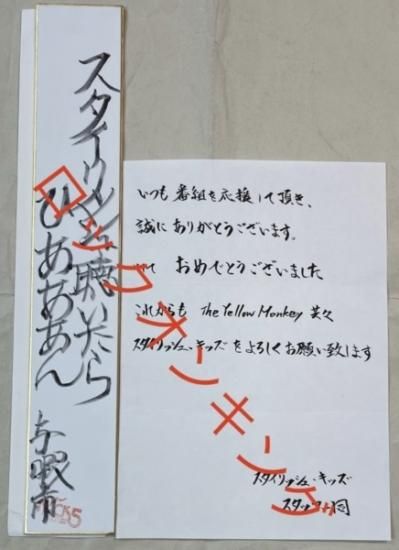 スタイリッシュ聴いたら
ひあああん
与那市
いつも 番組を応援して頂き、
誠にありがとうございます。
おめでとうございました
これからも The Yellow Monkey 共々
スタイリッシュ・キッズをよろしくお願い致します
スタイリッシュ・キッズ
スタッフ一同
ロックオンキング